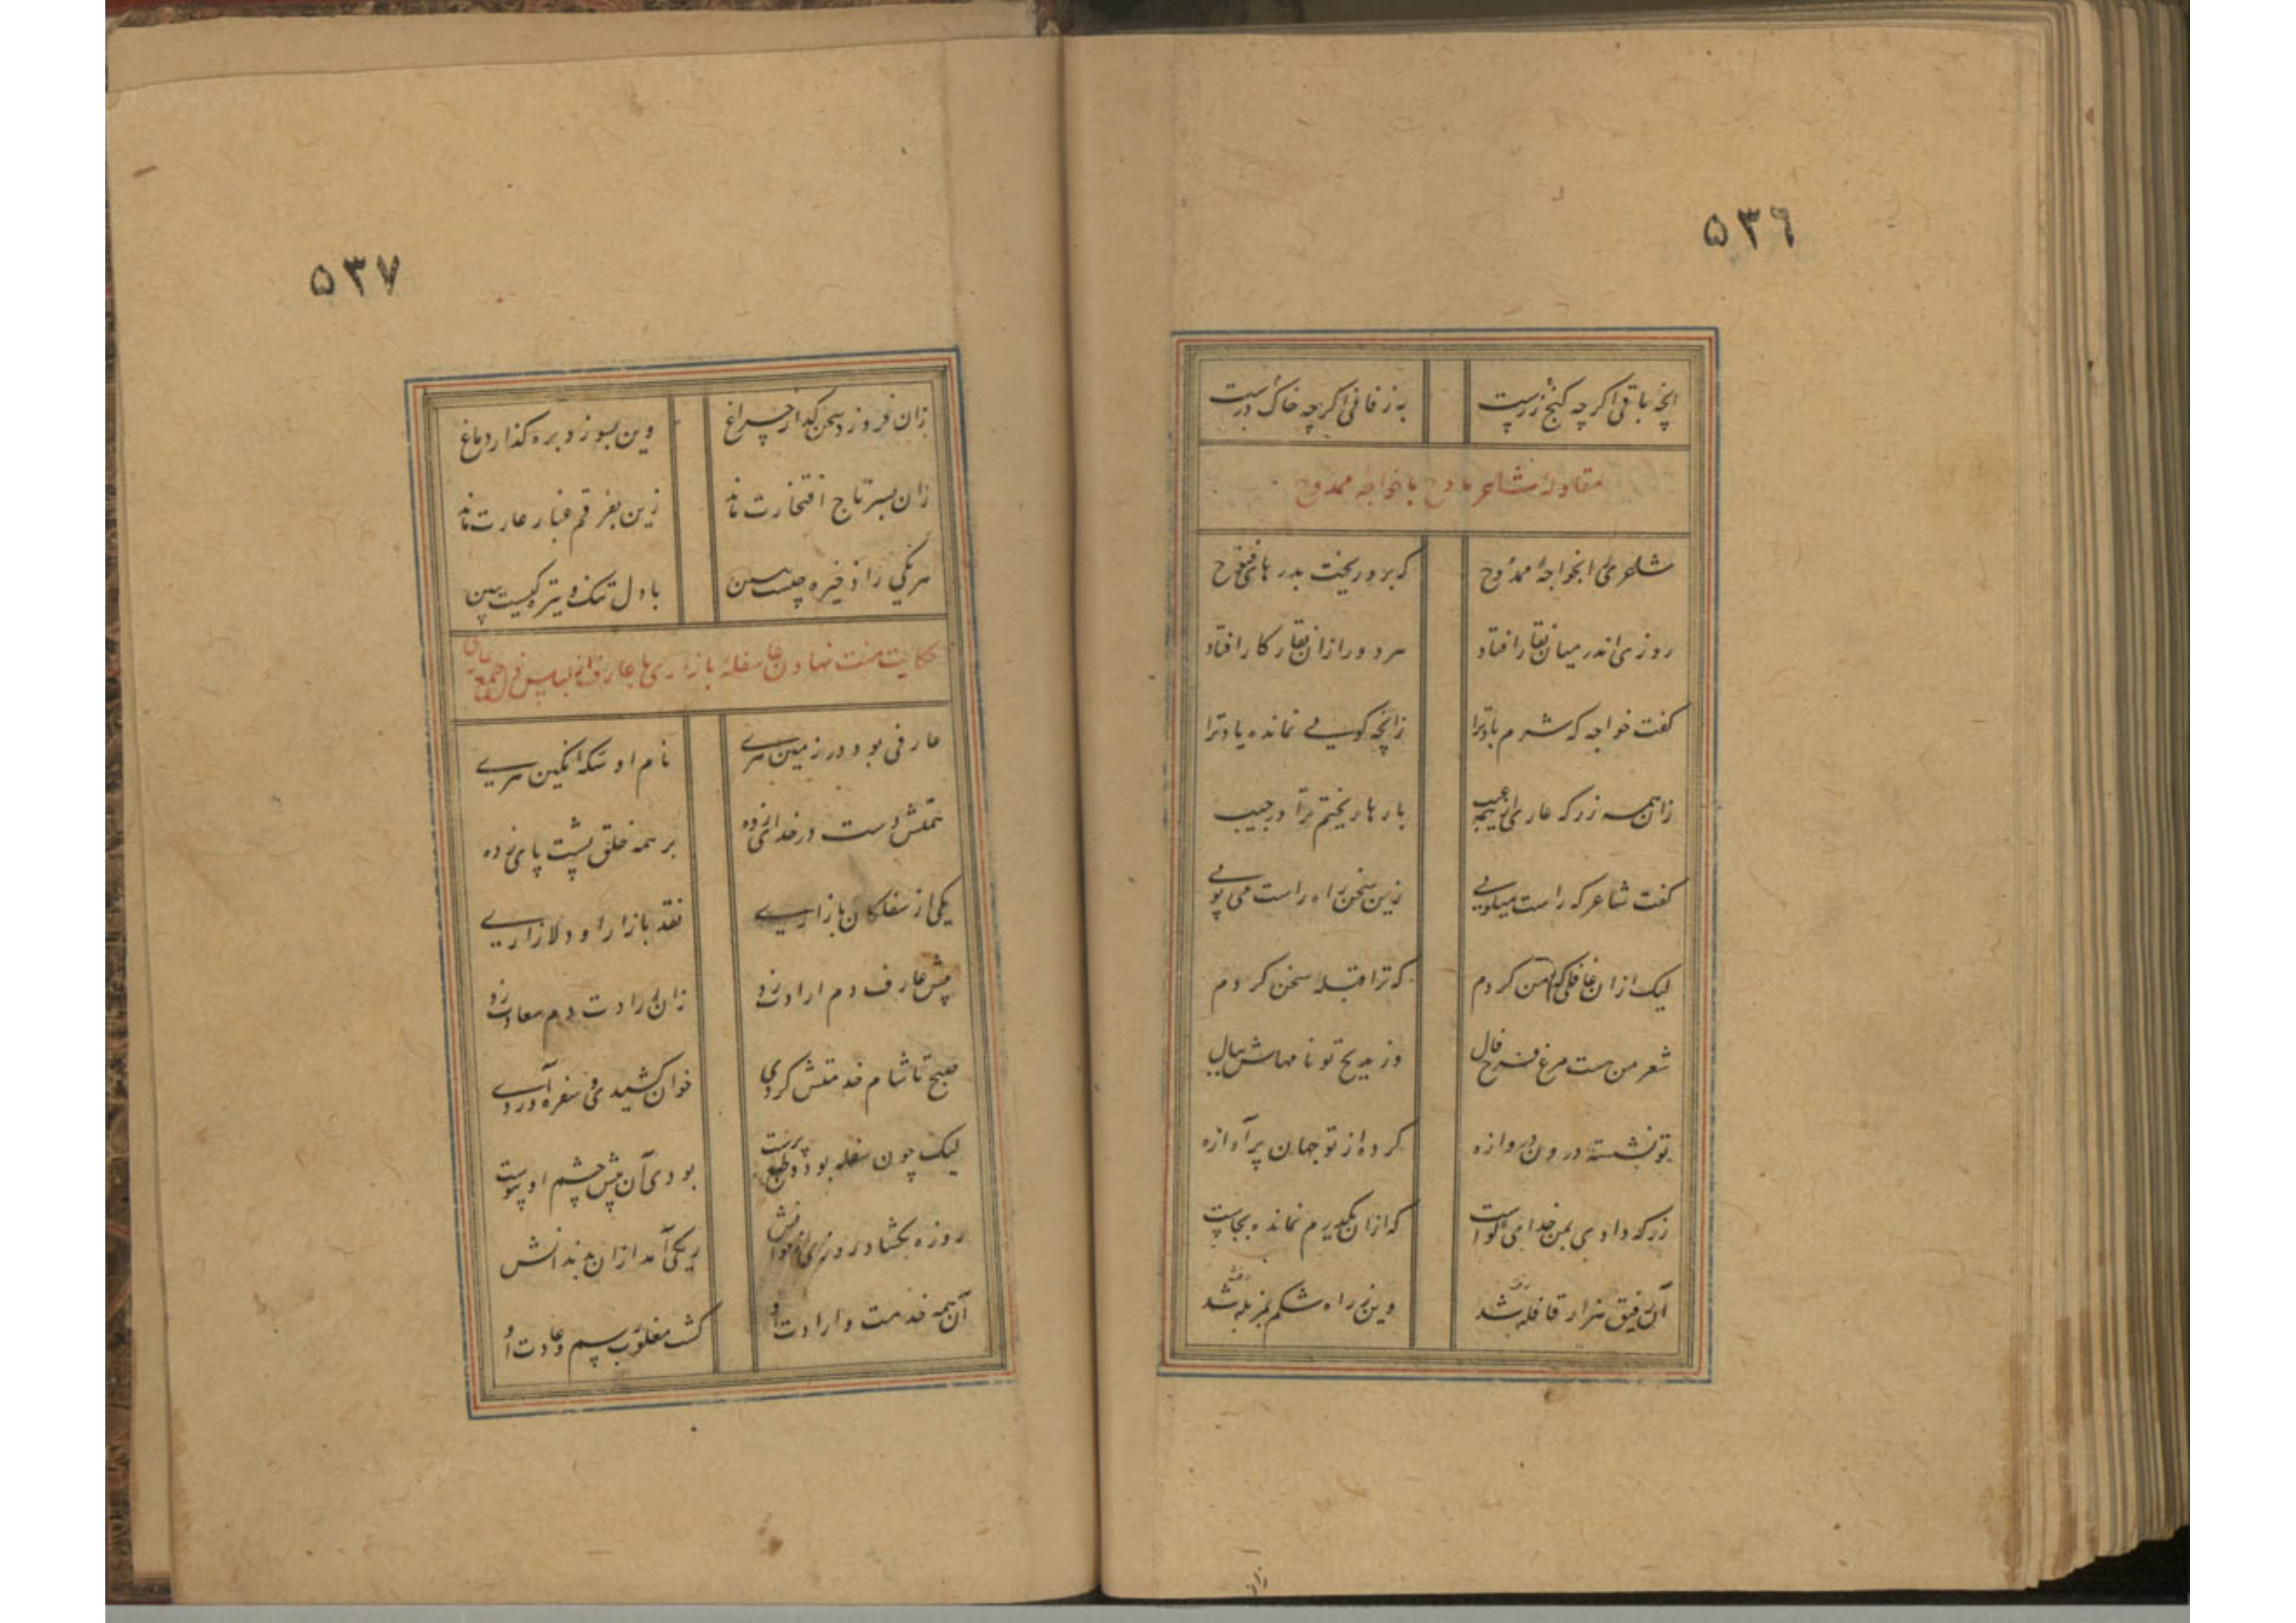 ۵۳۶
آنچه باقی اگرچه گنج زرست به ز فانی اگرچه خاک درست
مقاوله شاعر مادح با خواجه ممدوح
شاعری را بخواجهٔ ممدوح که برو ریخت بدرهای فتوح
روزی اندر میان نقار افتاد مرد و را زان نقار کار افتاد
گفت خواجه که شرم باد ترا زانچه گویی نمانده یاد ترا
زان همه زر که عاری از همه عیب بارها ریختم ترا در جیب
گفت شاعر که راست میگویی زین سخن راه راست می پویی
لیک ازان غافلی که من کردم که ترا قبله سخن کردم
شعر من هست مرغ فرخ فال وز مدیح تو نامهاش ببال
تو نشسته درون دروازه کرده از تو جهان پر آوازه
زر که دادی بمن خدای گواست که ازان یکدرم نمانده بجاست
آن رفیق هزار قافله شد وین ز راه شکم بمزبله شد
زان
۵۳۷
زان فروزد سخن گذار چراغ وین بسوزد بره گذار دماغ
زان بسر تاج افتخارت ماند زین بفرقم غبار عارت ماند
هر یکی را ذخیره چیست ببین با دل تنگ و تیره کیست ببین
حکایت منت نهادن سفله بازاری با عارف
عارفی بود در زمین هری نام او سکهٔ نگین هری
همتش دست در خدای زده بر همه خلق پشت پای زده
یکی از سفلگان بازاری نقد بازار او دلازاری
پیش عارف دم ارادت زد زان ارادت دم سعادت زد
صبح تا شام خدمتش کردی خوان کشیدی و سفره آوردی
لیک چون سفله بود و طبع پرست بودی آن پیش چشم او پیوست
روزه بگشاد روزی از خوانش ریگی آمد ازان بدندانش
آن همه خدمت و ارادت او گشت مغلوب رسم و عادت او